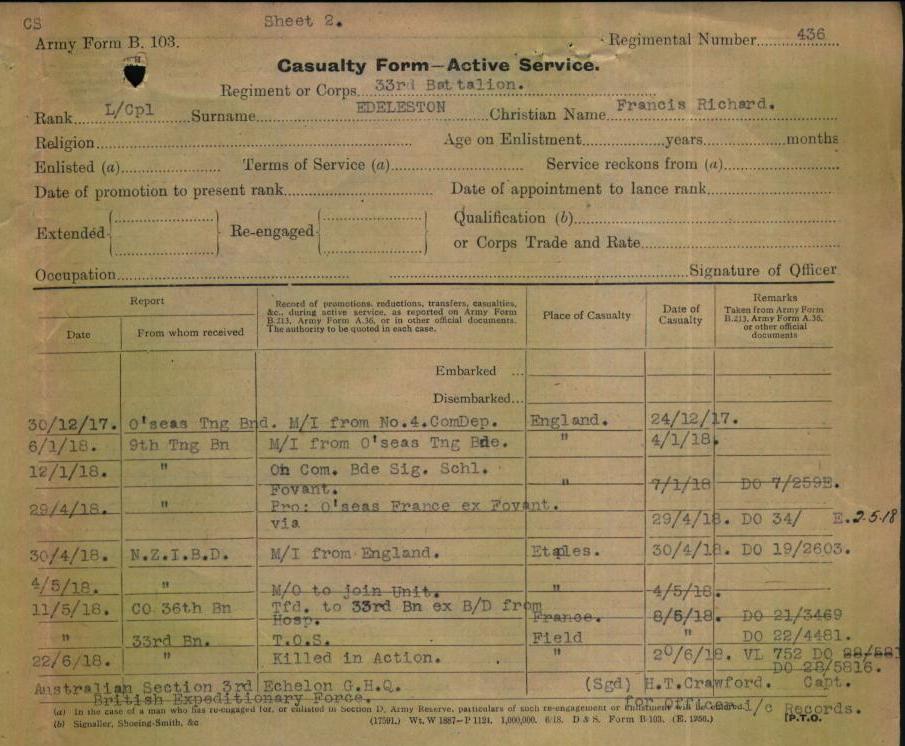 CS
Sheet 2.
Army Form B. 103.
Regimental Number 436
Casualty Form—Active Service.
Regiment or Corps 33rd Battalion.
Rank L/Cpl Surname EDELESTON Christian Name Francis Richard.
Religion Age on Enlistment years months
Enlisted (a) Terms of Service (a) Service reckons from (a)
Date of promotion to present rank Date of appointment to lance rank
Extended Re-engaged Qualification (b)
or Corps Trade and Rate
Occupation Signature of Officer
Report
Date
From whom received
Record of promotions, reductions, transfers, casualties, &c., during active service, as reported on Army Form B.213, Army Form A.36, or in other official documents. The authority to be quoted in each case.
Place of Casualty
Date of Casualty
Remarks
Taken from Army Form B.213, Army Form A.36, or other official documents
Embarked ...
Disembarked...
30/12/17. O'seas Tng Bnd. M/I from No.4.ComDep. England. 24/12/17.
6/1/18. 9th Tng Bn M/I from O'seas Tng Bde. " 4/1/18.
12/1/18. " On Com. Bde Sig. Schl.
Fovant. " 7/1/18 DO 7/259E.
29/4/18. " Pro: O'seas France ex Fovant.
via 29/4/18. DO 34/ E. 2.5.18
30/4/18. N.Z.I.B.D. M/I from England. Etaples. 30/4/18. DO 19/2603.
4/5/18. " M/O to join Unit. " 4/5/18.
11/5/18. CO 36th Bn Tfd. to 33rd Bn ex B/D from
Hosp. France. 8/5/18. DO 21/3469
" 33rd Bn. T.O.S. Field " DO 22/4481.
22/6/18. " Killed in Action. " 20/6/18. VL 752 DO
DO 28/5816.
Australian Section 3rd Echelon G.H.Q. (Sgd) H.T.Crawford. Capt.
British Expeditionary Force. for Officer i/c Records.
(a) In the case of a man who has re-engaged for, or enlisted in Section D, Army Reserve, particulars of such re-engagement or enlistment will be entered.
(b) Signaller, Shoeing-Smith, &c. (17591.) Wt. W 1887—P 1124. 1,000,000. 6/18. D & S. Form B/103. (E. 1256.) [P.T.O.